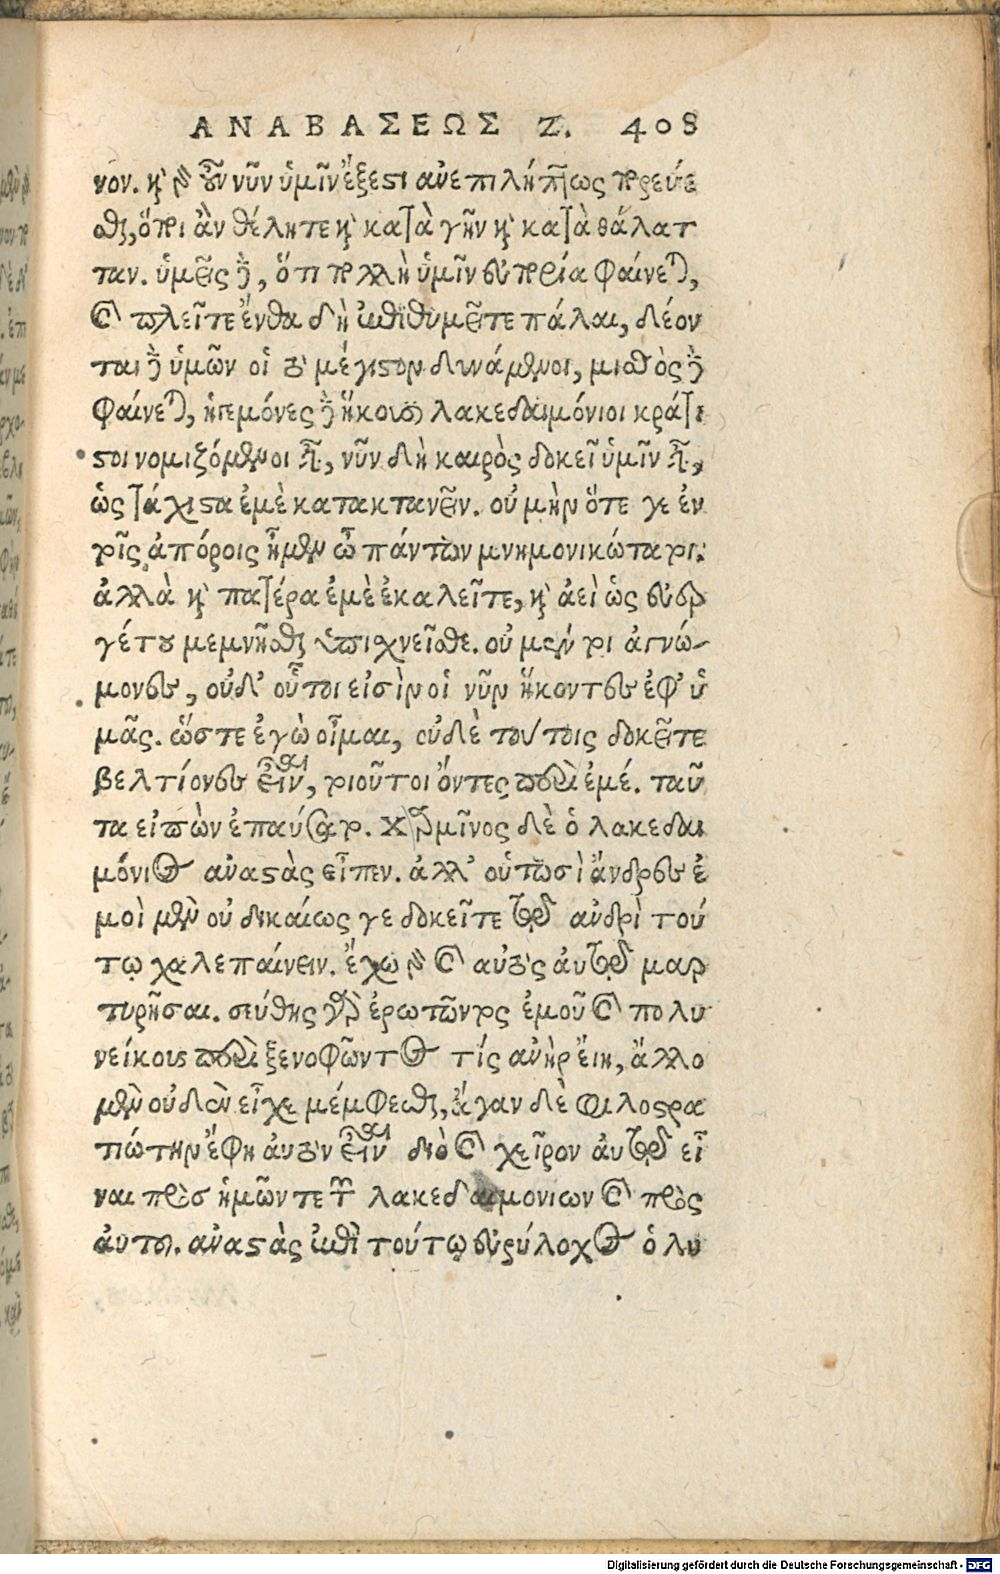 ΑΝΑΒΑΣΕΩΣ Ζ. 408
νον. καὶ γὰρ οὖν νῦν ὑμῖν ἔξεστι ἀνεπιλήπτως πορεύε
σθαι, ὅποι ἂν θέλητε καὶ κατὰ γῆν καὶ κατὰ θάλατ
ταν. ὑμεῖς δὲ, ὅτι πολλὴ ὑμῖν εὐπορία φαίνεται,
καὶ πλεῖτε ἔνθα δὴ ἐπιθυμεῖτε πάλαι, δέον
ται δὲ ὑμῶν οἱ τὸ μέγιστον δυνάμενοι, μισθὸς δὲ
φαίνεται, ἡγεμόνες δὲ ἥκουσι λακεδαιμόνιοι κράτι
στοι νομιζόμενοι εἶναι, νῦν δὴ καιρὸς δοκεῖ ὑμῖν εἶναι,
ὡς τάχιστα ἐμὲ κατακτανεῖν. οὐ μὴν ὅτε γε ἐν
τοῖς ἀπόροις ἦμεν ὦ πάντων μνημονικώτατοι·
ἀλλὰ καὶ πατέρα ἐμὲ ἐκαλεῖτε, καὶ ἀεὶ ὡς εὐερ
γέτου μεμνῆσθαι ὑπισχνεῖσθε. οὐ μέντοι ἀγνώ-
μονες, οὐδ' οὗτοι εἰσὶν οἱ νῦν ἥκοντες ἐφ' ὑ
μᾶς. ὥστε ἐγὼ οἶμαι, οὐδὲ τούτοις δοκεῖτε
βελτίονες εἶναι, τοιοῦτοι ὄντες περὶ ἐμέ. ταῦ
τα εἰπὼν ἐπαύσατο. χαρμῖνος δὲ ὁ λακεδαι
μόνιος ἀναστὰς εἶπεν. ἀλλ' οὑτωσὶ ἄνδρες ἐ
μοὶ μὲν οὐ δικαίως γε δοκεῖτε τῷ ἀνδρὶ τού
τῳ χαλεπαίνειν. ἔχω γὰρ καὶ αὐτὸς αὐτῷ μαρ
τυρῆσαι. σεύθης γὰρ ἐρωτῶντος ἐμοῦ καὶ πολυ
νείκους περὶ ξενοφῶντος τίς ἀνὴρ εἴη, ἄλλο
μὲν οὐδὲν εἶχε μέμψεσθαι, ἄγαν δὲ φιλοστρα
τιώτην ἔφη αὐτὸν εἶναι διὸ καὶ χεῖρον αὐτῷ εἶ
ναι πρὸσ ἡμῶν τε τῶν λακεδαιμονιων καὶ πρὸς
αὐτοῦ. ἀναστὰς ἐπὶ τούτῳ εὐρύλοχος ὁ λυ
Digitalisierung gefördert durch die Deutsche Forschungsgemeinschaft - DFG